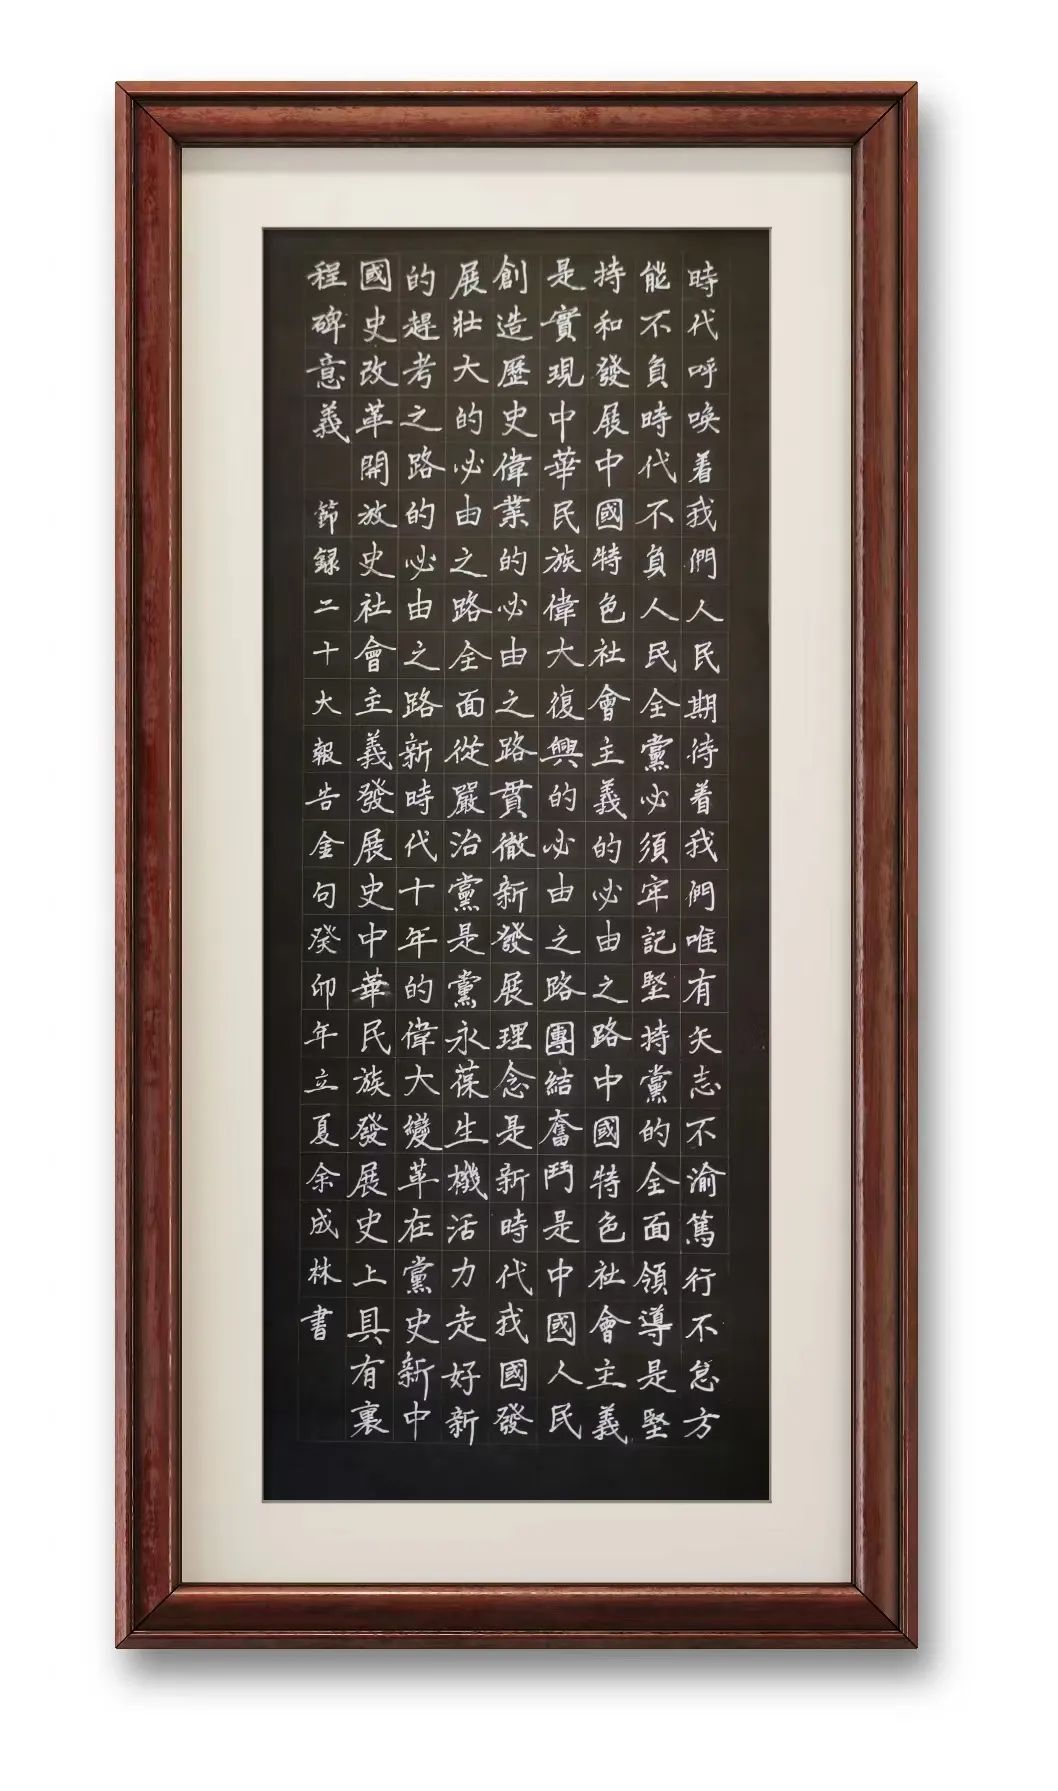 時代呼喚着我們人民期待着我們唯有矢志不渝篤行不怠方
能不負時代不負人民全黨必須牢記堅持黨的全面領導是堅
持和發展中國特色社會主義的必由之路中國特色社會主義
是實現中華民族偉大復興的必由之路團結奮鬥是中國人民
創造歷史偉業的必由之路貫徹新發展理念是新時代我國發
展壯大的必由之路全面從嚴治黨是黨永葆生機活力走好新
的趕考之路的必由之路新時代十年的偉大變革在黨史新中
國史改革開放史社會主義發展史中華民族發展史上具有裏
程碑意義 節録二十大報告金句癸卯年立夏余成林書